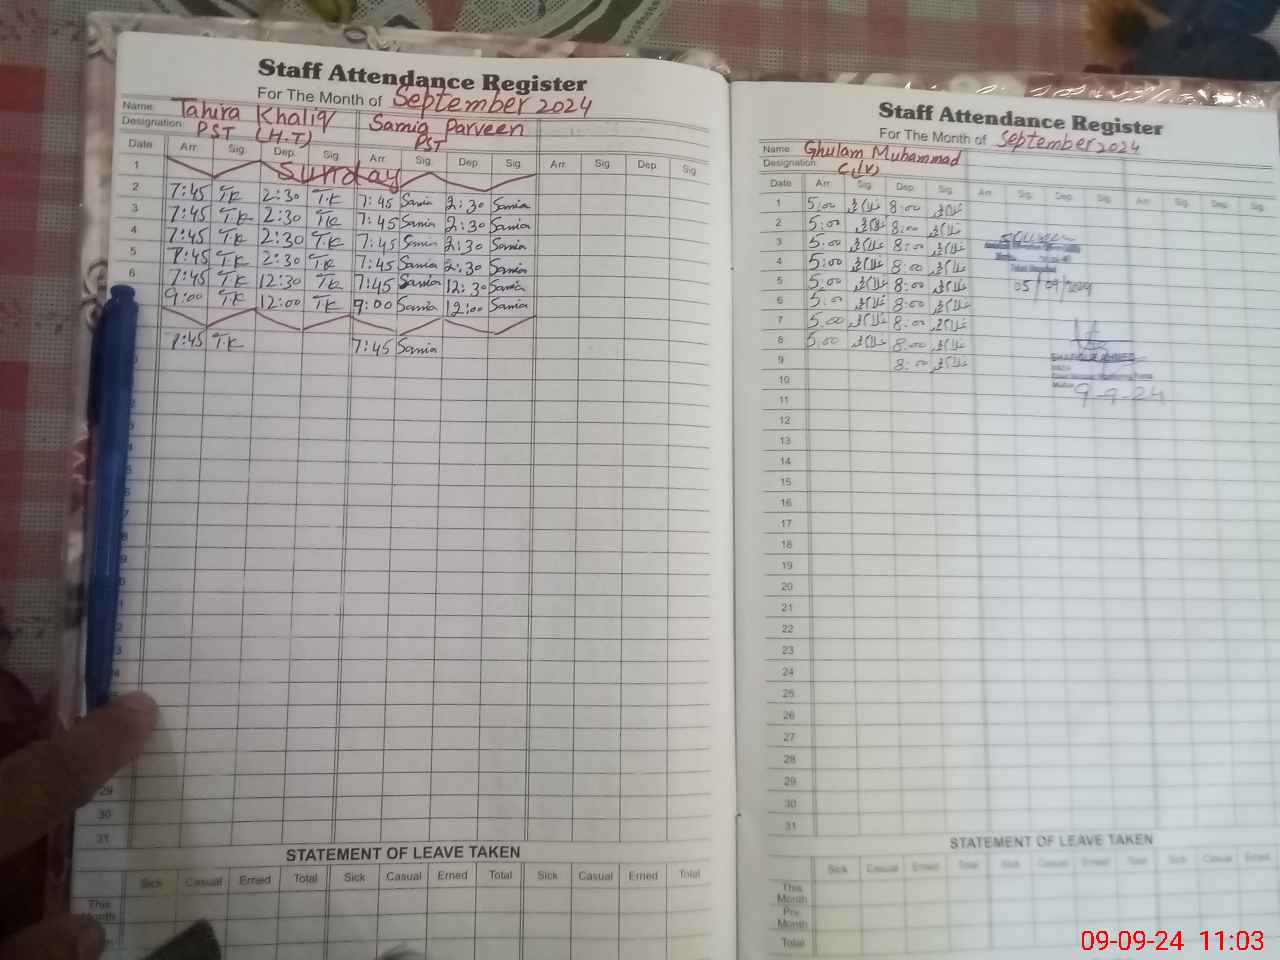 Staff Attendance Register
For The Month of September 2024
Name: Tahira Khaliq Samia Parveen
Designation: PST (H.T) PST
Date Arr. Sig. Dep. Sig Arr. Sig. Dep. Sig. Arr. Sig. Dep. Sig
1 Sunday
2 7:45 TK 2:30 T.K 7:45 Samia 2:30 Samia
3 7:45 TK 2:30 TK 7:45 Samia 2:30 Samia
4 7:45 TK 2:30 T.K 7:45 Samia 2:30 Samia
5 7:45 TK 2:30 TK 7:45 Samia 2:30 Samia
6 7:45 TK 12:30 TK 7:45 Samia 12:30 Samia
9:00 TK 12:00 TK 9:00 Samia 12:00 Samia
7:45 T.K 7:45 Samia
29
30
31
STATEMENT OF LEAVE TAKEN
Sick Casual Erned Total Sick Casual Erned Total Sick Casual Erned Total
This
Month
Staff Attendance Register
For The Month of September 2024
Name: Ghulam Muhammad
Designation: C(IV)
Date Arr Sig. Dep. Sig. Arr. Sig. Dep. Sig. Arr. Sig. Dep. Sig.
1 5:00 8:00
2 5:00 8:00
3 5:00 8:00
4 5:00 8:00
5 5:00 8:00
05/09/2024
6 5:00 8:00
7 5:00 8:00
8 5:00 8:00
9 8:00
10
9-9-24
11
12
13
14
15
16
17
18
19
20
21
22
23
24
25
26
27
28
29
30
31
STATEMENT OF LEAVE TAKEN
Sick Casual Erned Total Sick Casual Erned Total Sick Casual Erned
This
Month
Prv.
Month
Total
09-09-24 11:03